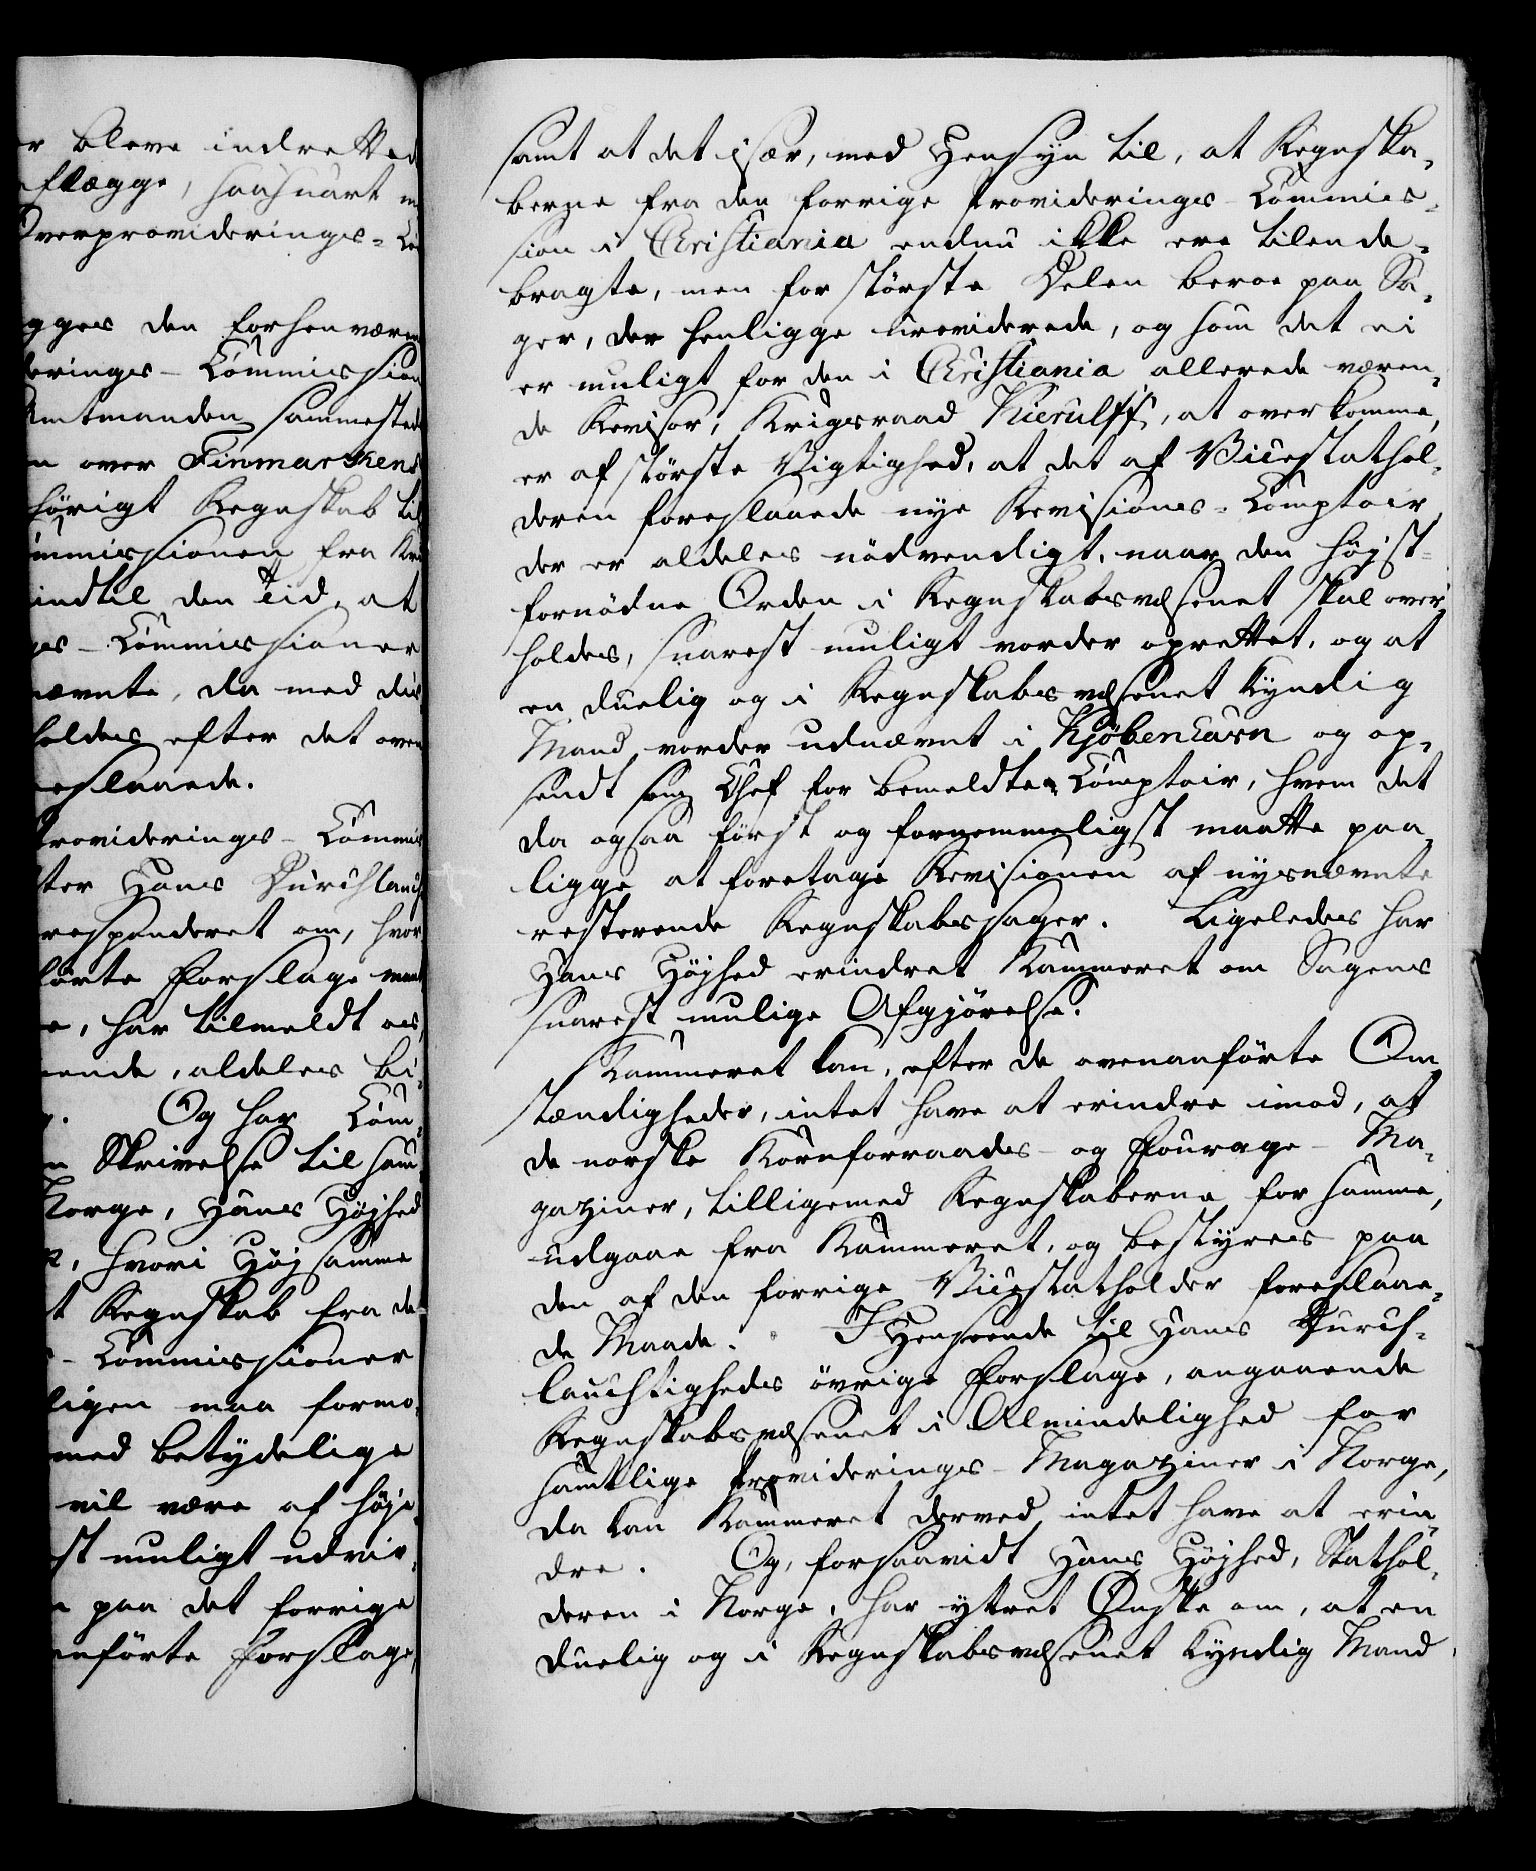 r bleve indrettede
eflægge, saasnart m
Overproviderings-Co
gges den forhenværen
deringes-Commission
Amtmanden sammested
n over Finmarkens
hörigt Regnskab til
ommissionen fra
indtil den Tid, at
ges-Commissioner
nævnte, da med dis
holdes efter det oven
eslaaede.
Provideringes-Commis
ter Hans Durchlauch
responderet om, hvor
förte Forslage
e, har tilmeldt os,
ende, aldeles bi-
Og har Com-
n Skrivelse til sam
Norge, Hans Højhed
hvori Højsamme
t Regnskab fra de
-Commissioner
ligen maa formo-
med betydelige
vil være af höje
st muligt udvir-
paa det forrige
nförte Forslage,
samt at det især, med Hensyn til, at Regnska-
berne fra den forrige Provideringes-Commis-
sion i Christiania endnu ikke ere tilende-
bragte, men for störste Delen beroe paa Sa-
ger, der henligge ureviderede, og som det ei
er muligt for den i Christiania allerede væren-
de Revisor, Krigsraad Kierulff, at overkomme,
er af störste Vigtighed, at det af Vicestathol-
deren foreslaaede nye Revisions-Comptoir
der er aldeles nödvendigt, naar den højst-
fornödne Orden i Regnskabsvæsenet skal over-
holdes, snarest muligt vorder oprettet, og at
en duelig og i Regnskabsvæsenet kyndig
Mand vorder udnævnt i Kjöbenhavn og op-
sendt som Chef for bemeldte Comptoir, hvem det
da ogsaa först og fornemmeligst maatte paa-
ligge at foretage Revisionen af nysnævnte
resterende Regnskabssager. Ligeledes har
Hans Højhed erindret Kammeret om Sagens
snarest mulige Afgjörelse.
Kammeret kan, efter de ovenanförte Om-
stændigheder, intet have at erindre imod, at
de norske Kornforraads- og Fourage-Ma-
gaziner, tilligemed Regnskaberne for samme,
udgaae fra Kammeret, og bestyres paa
den af den forrige Vicestatholder foreslaae-
de Maade. I Henseende til Hans Durch-
lauchtigheds övrige Forslage, angaaende
Regnskabsvæsenet i Almindelighed for
samtlige Provideringes-Magaziner i Norge,
da kan Kammeret derved intet have at erin-
dre. Og, forsaavidt Hans Højhed, Stathol-
deren i Norge, har yttret Ønske om, at en
duelig og i Regnskabsvæsenet kyndig Mand